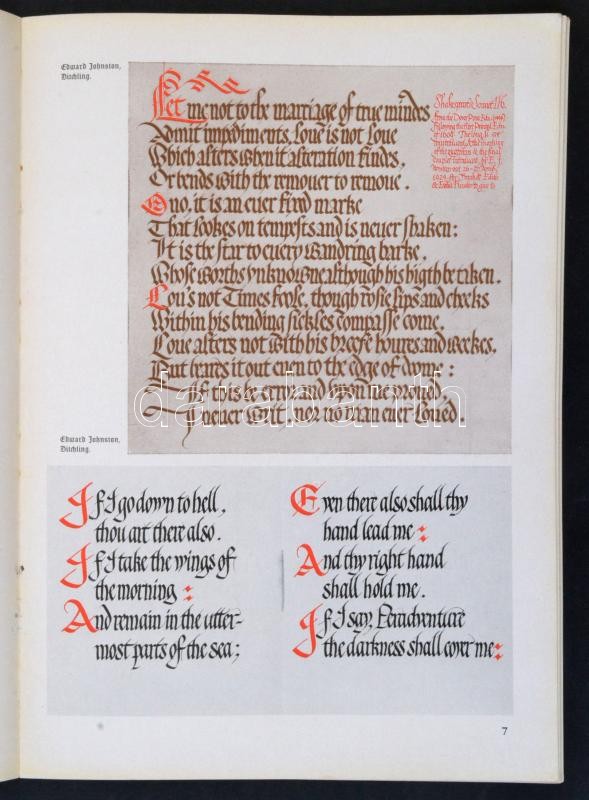 Edward Johnston,
Ditchling.
Let me not to the marriage of true mindes
Admit impediments, loue is not loue
Which alters when it alteration findes,
Or bends with the remouer to remoue.
O no, it is an euer fixed marke
That lookes on tempests and is neuer shaken:
It is the star to euery wandring barke,
Whose worths vnknowne although his higth be taken.
Lou's not Times foole, though rosie lips and cheeks
Within his bending sickles compasse come,
Loue alters not with his breefe houres and weekes,
But beares it out euen to the edge of dome:
If this be error and vpon me proued,
I neuer writ, nor no man euer loued.
Shakespeare's Sonnet 116.
from the Dover
Following the first
of 1609. The long
of the quatrains & the final
couplet
1929. for
Edward Johnston,
Ditchling.
darabanth
If I go down to hell,
thou art there also.
If I take the wings of
the morning:
And remain in the utter-
most parts of the sea;
Even there also shall thy
hand lead me:
And thy right hand
shall hold me.
If I say, Peradventure
the darkness shall cover me:
7